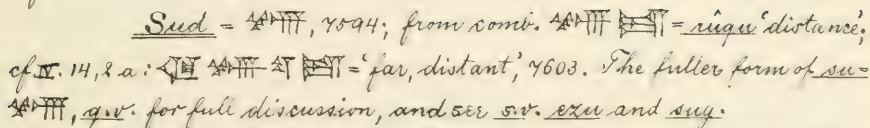 Sud = , 7594; from comb. = rûqu 'distance';
cf. IV. 14, 2 a: = 'far, distant', 7603. The fuller form of su =
, q.v. for full discussion, and see s.v. ezu and sug.